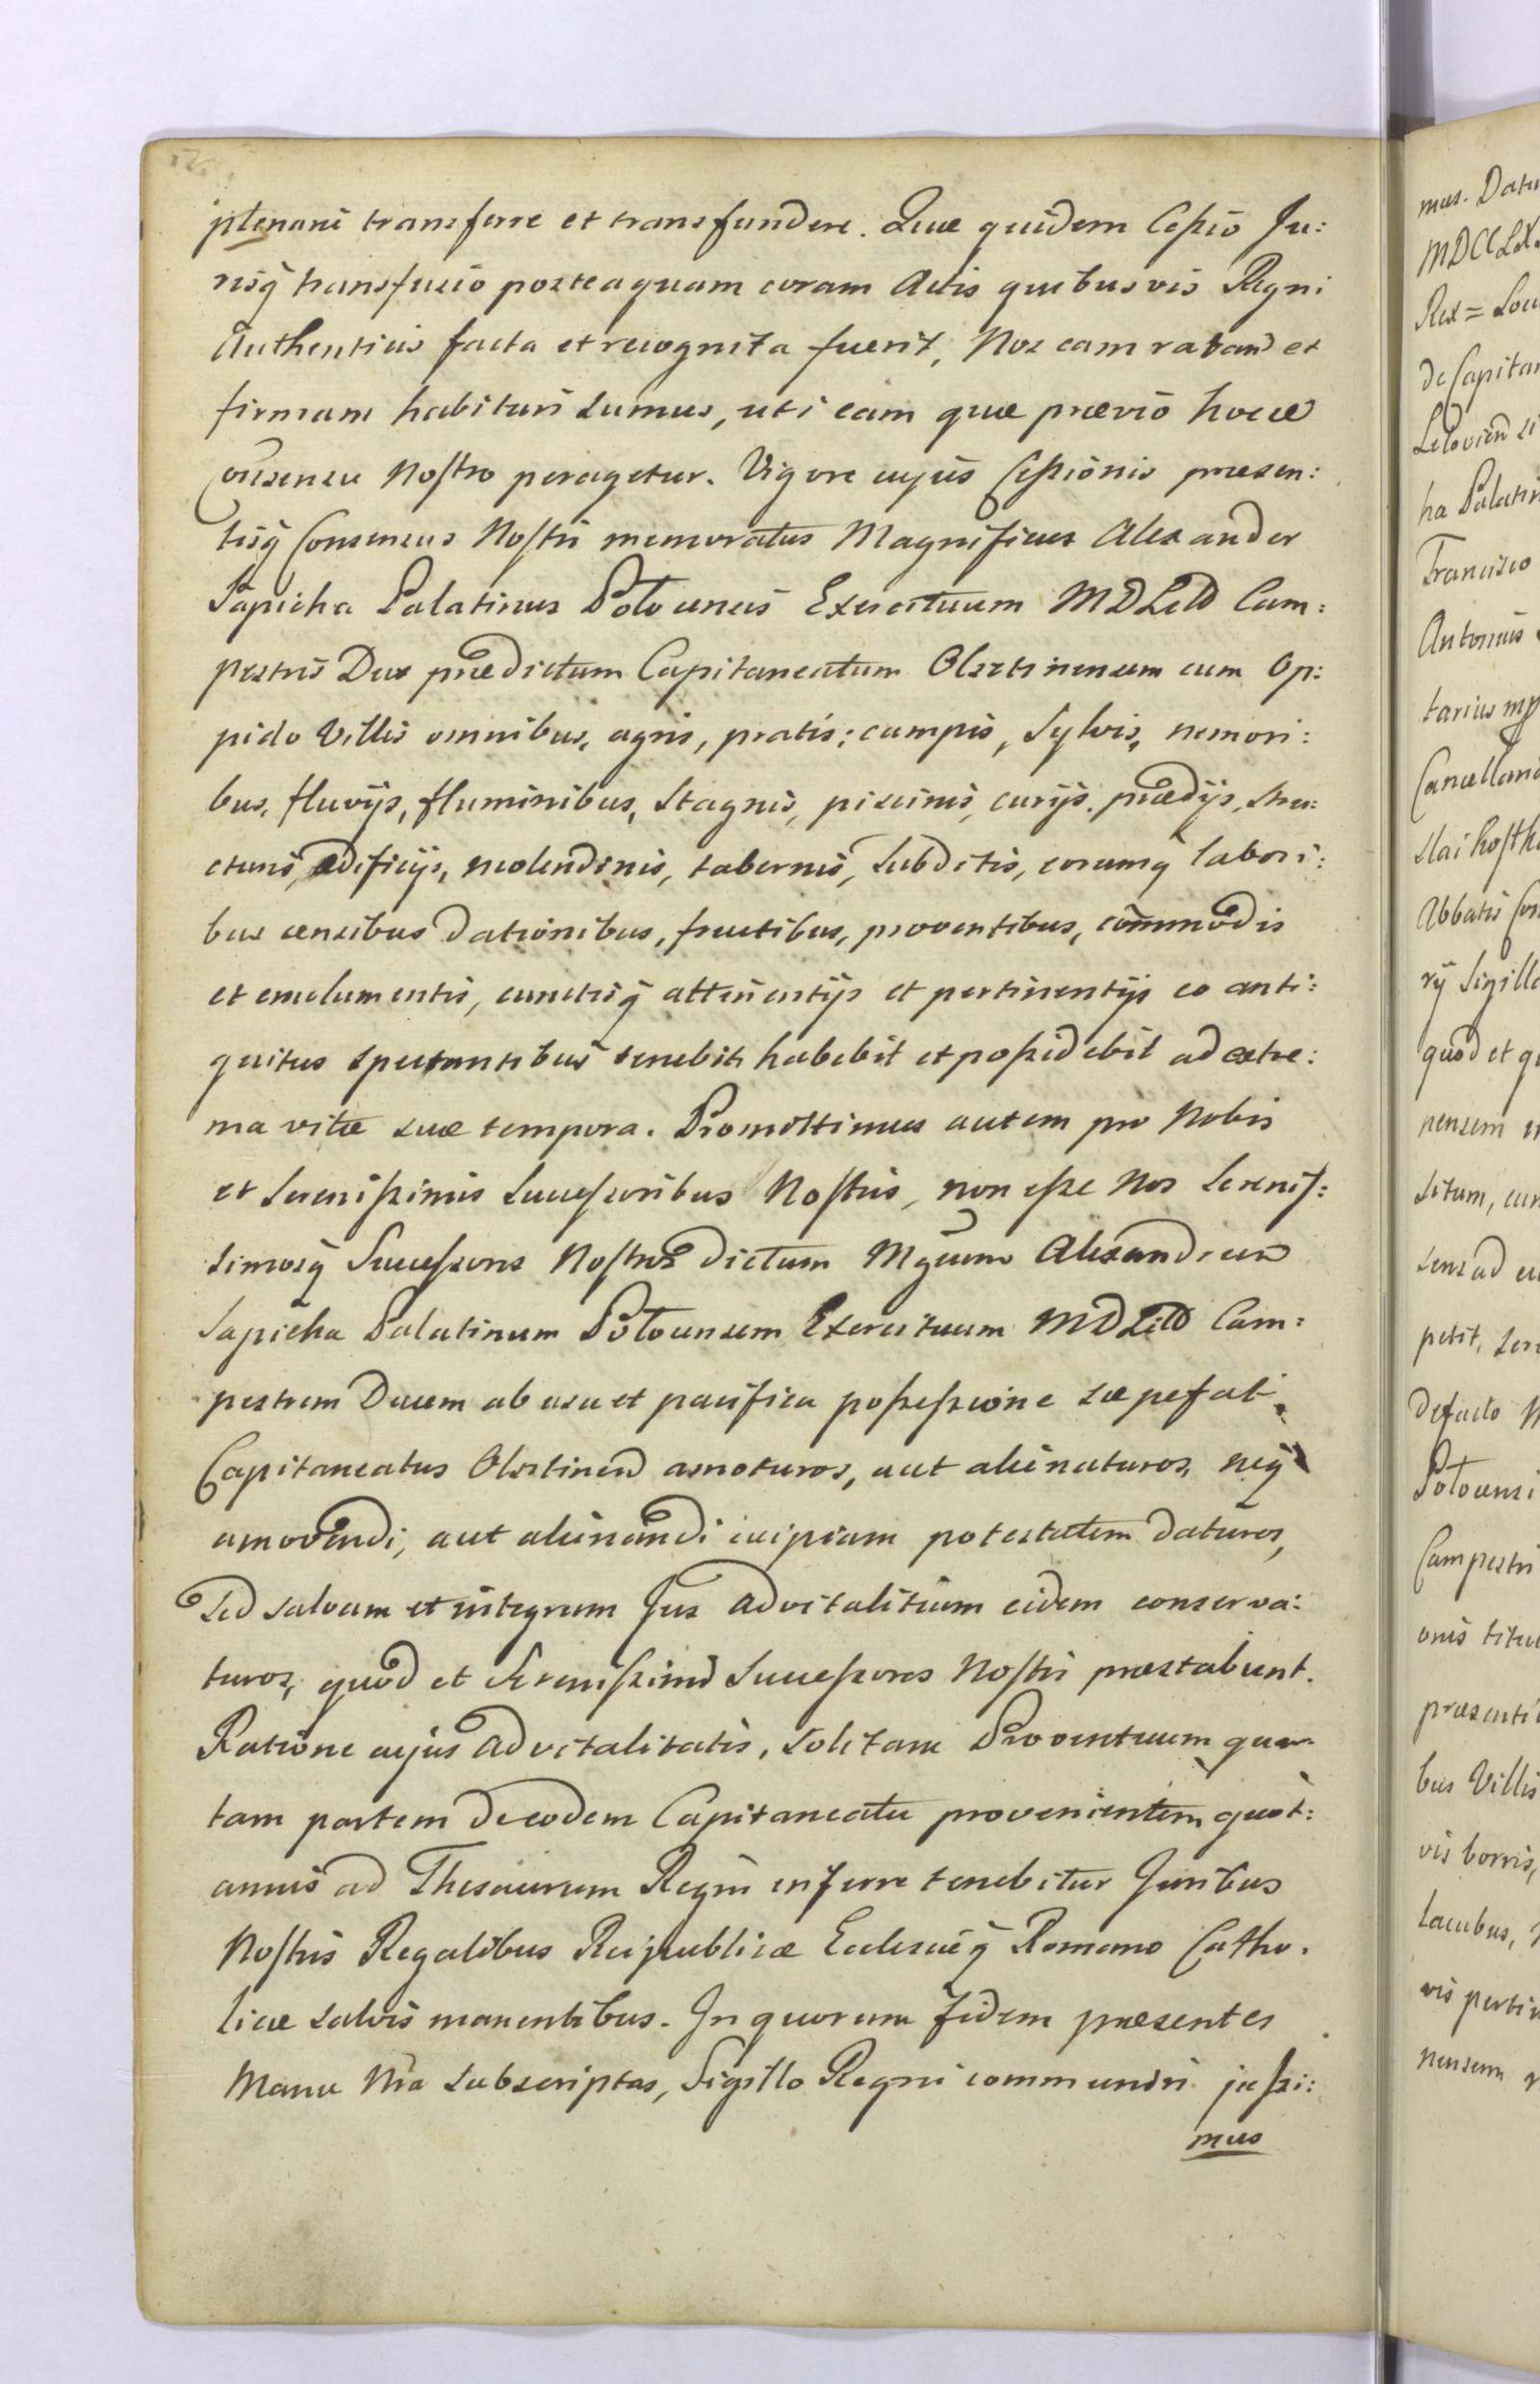 plenarie transferre et transfundere. Quæ quidem Cessio Ju:
risq̃ transfusio posteaquam coram Actis quibusvis Regni
Authenticis facta et recognita fuerit, Nos eam ratam et
firmam habituri sumus, uti eam quæ prævio hocce
Consensu Nostro peragetur. Vigore cujus Cessionis præsen:
tisq̃ Consensus Nostri memoratus Magnificus Alexander
Sapieha Palatinus Polocensis Exercituum MDLitt Cam:
pestris Dux prædictum Capitaneatum Olsztinensem cum Op:
pido Villis omnibus, agris, pratis, campis, Sylvis, nemori:
bus, fluvijs, fluminibus, Stagnis, piscinis, curijs, prædijs, stru:
cturis, ædificijs, molendinis, tabernis, Subditis, eorumq̃ labori:
bus censibus dationibus, fructibus, proventibus, com̃modis
et emolumentis, cunctisq̃ attinentijs et pertinentijs eo anti:
quitus spectantibus tenebit habebit et possidebit ad extre:
ma vitæ suæ tempora. Promittimus autem pro Nobis
et Serenissimis Successoribus Nostris, non esse Nos Serenis:
simosq̃ Successores Nostros dictum Mgcum Alexandrum
Sapieha Palatinum Polocensem Exercituum MDLitt Cam:
pestrem Ducem ab usu et pacifica possessione sæpefati
Capitaneatus Olsztinen amoturos, aut alienaturos, neq̃
amovendi, aut alienandi cuipiam potestatem daturos,
Sed salvum et integrum Jus advitalitium eidem conserva:
turos, quod et Serenissimi Successores Nostri præstabunt.
Ratione cujus advitalitatis, solitam Proventuum quar
tam partem de eodem Capitaneatu provenientem quot:
annis ad Thesaurum Regni inferre tenebitur Juribus
Nostris Regalibus Reipublicæ Ecclesiæq̃ Romano Catho.
licæ salvis manentibus. In quorum fidem præsentes
Manu Nrã subscriptas, Sigillo Regni communiri jussi:
mus
mus. Datu
MDCCLX
Rex = Locu
de Capitan
Lelovien si
ha Palatin
Francisco
Antonius
tarius mp
Cancellari
slai kosth
Abbatis Co
rÿ Sigill
quod et q
nensem
situm, cu
sens ad
petit,
defacto
Polocensi
Campestri
onis titu
præsenti
bus Villis
vis borris,
lacubus,
vis perti
nensem